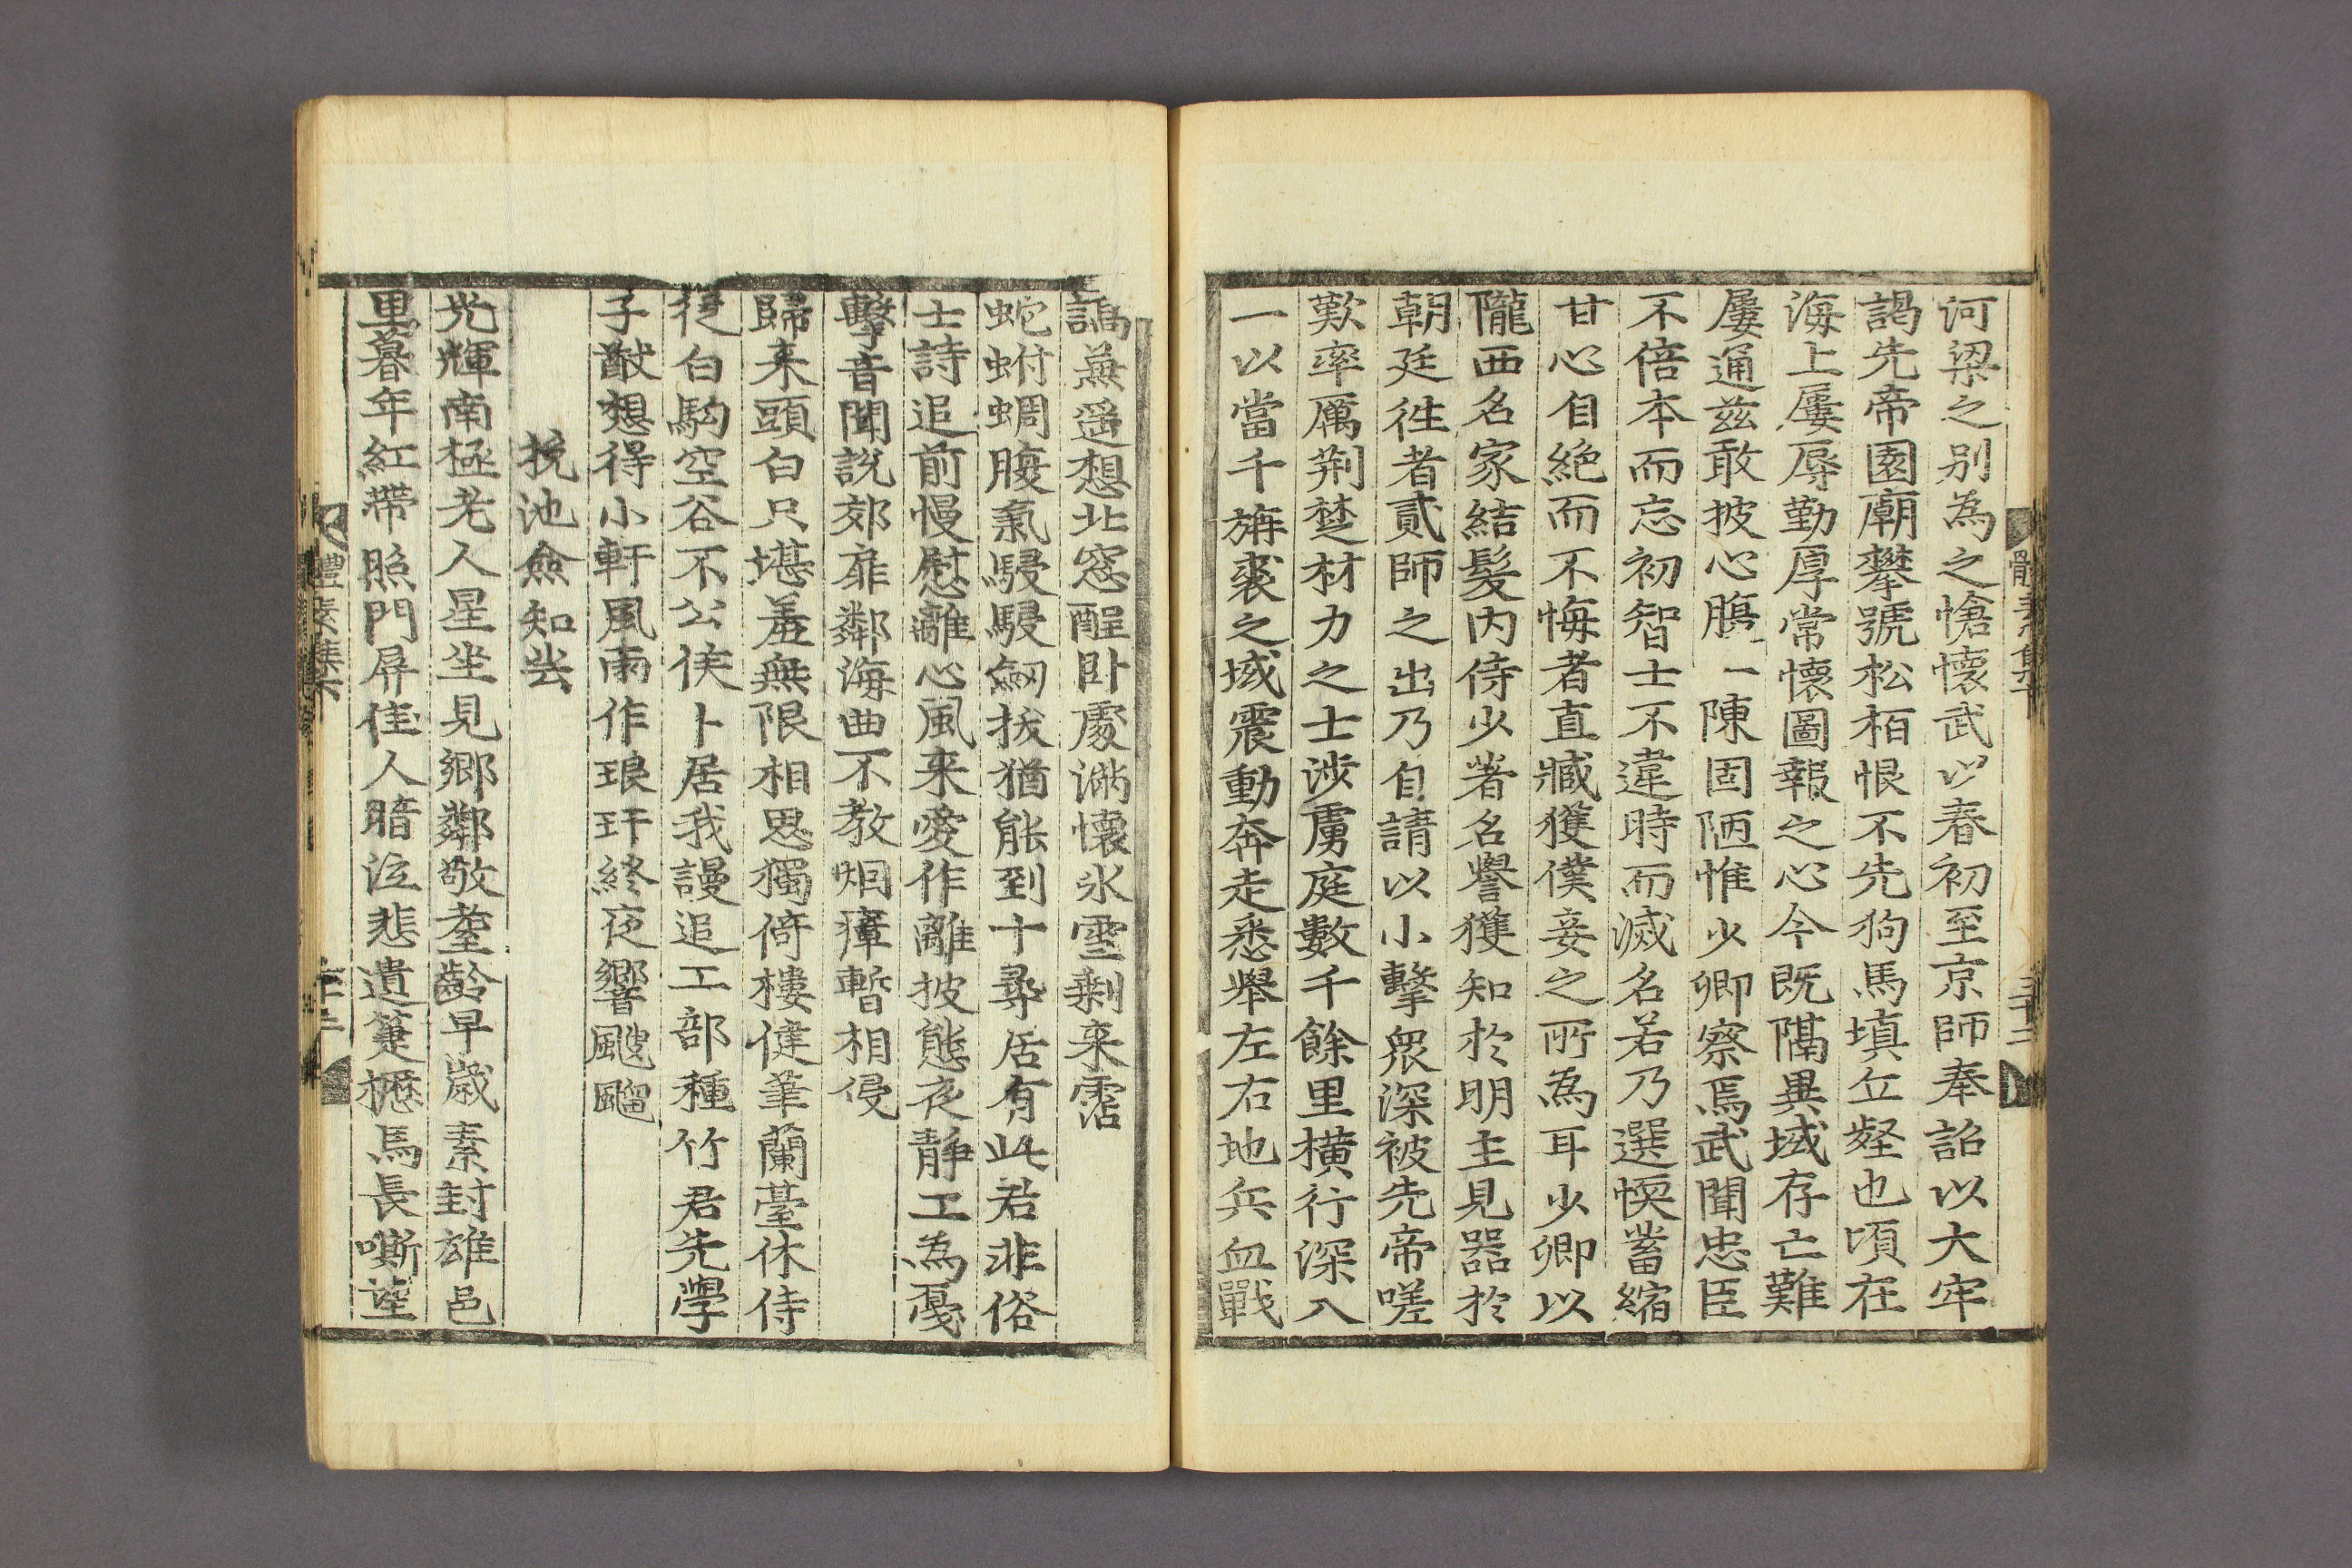 河梁之别為之愴懷武以春初至京師奉詔以大牢
謁先帝園廟攀號松栢恨不先狗馬填丘壑也頃在
海上屢辱勤厚常懷圖報之心今既隔異域存亡難
屢通兹敢披心膓一陳固陋惟少卿察焉武聞忠臣
不倍本而忘初智士不違時而滅名若乃選愞蓄縮
甘心自絶而不悔者直臧獲僕妾之所為耳少卿以
隴西名家結髮内侍少著名譽獲知於明主見器於
朝廷徃者貳師之出乃自請以小擊衆深被先帝嗟
歎率厲荆楚材力之士涉虜庭數千餘里横行深入
一以當千旃裘之域震動奔走悉舉左右地兵血戰
體素集下
三十三
譌無遥想北窓醒卧處滿懷氷雪剩来霑
蛇蚹蜩腹氣駸駸劒拔猶能到十尋居有此君非俗
士詩追前慢慰離心風来愛作離披態夜静工為戞
擊音聞說郊扉鄰海曲不教烟瘴暫相侵
歸来頭白只堪羞無限相思獨倚樓健筆蘭臺休侍
從白駒空谷不公侯卜居我謾追工部種竹君先學
子猷想得小軒風雨作琅玕終夜響颼飀
挽池僉知芸
光輝南極老人星坐見鄉鄰敬耋齡早歲素封雄邑
里暮年紅帶照門屏佳人暗泣悲遺箑櫪馬長嘶
體素集下